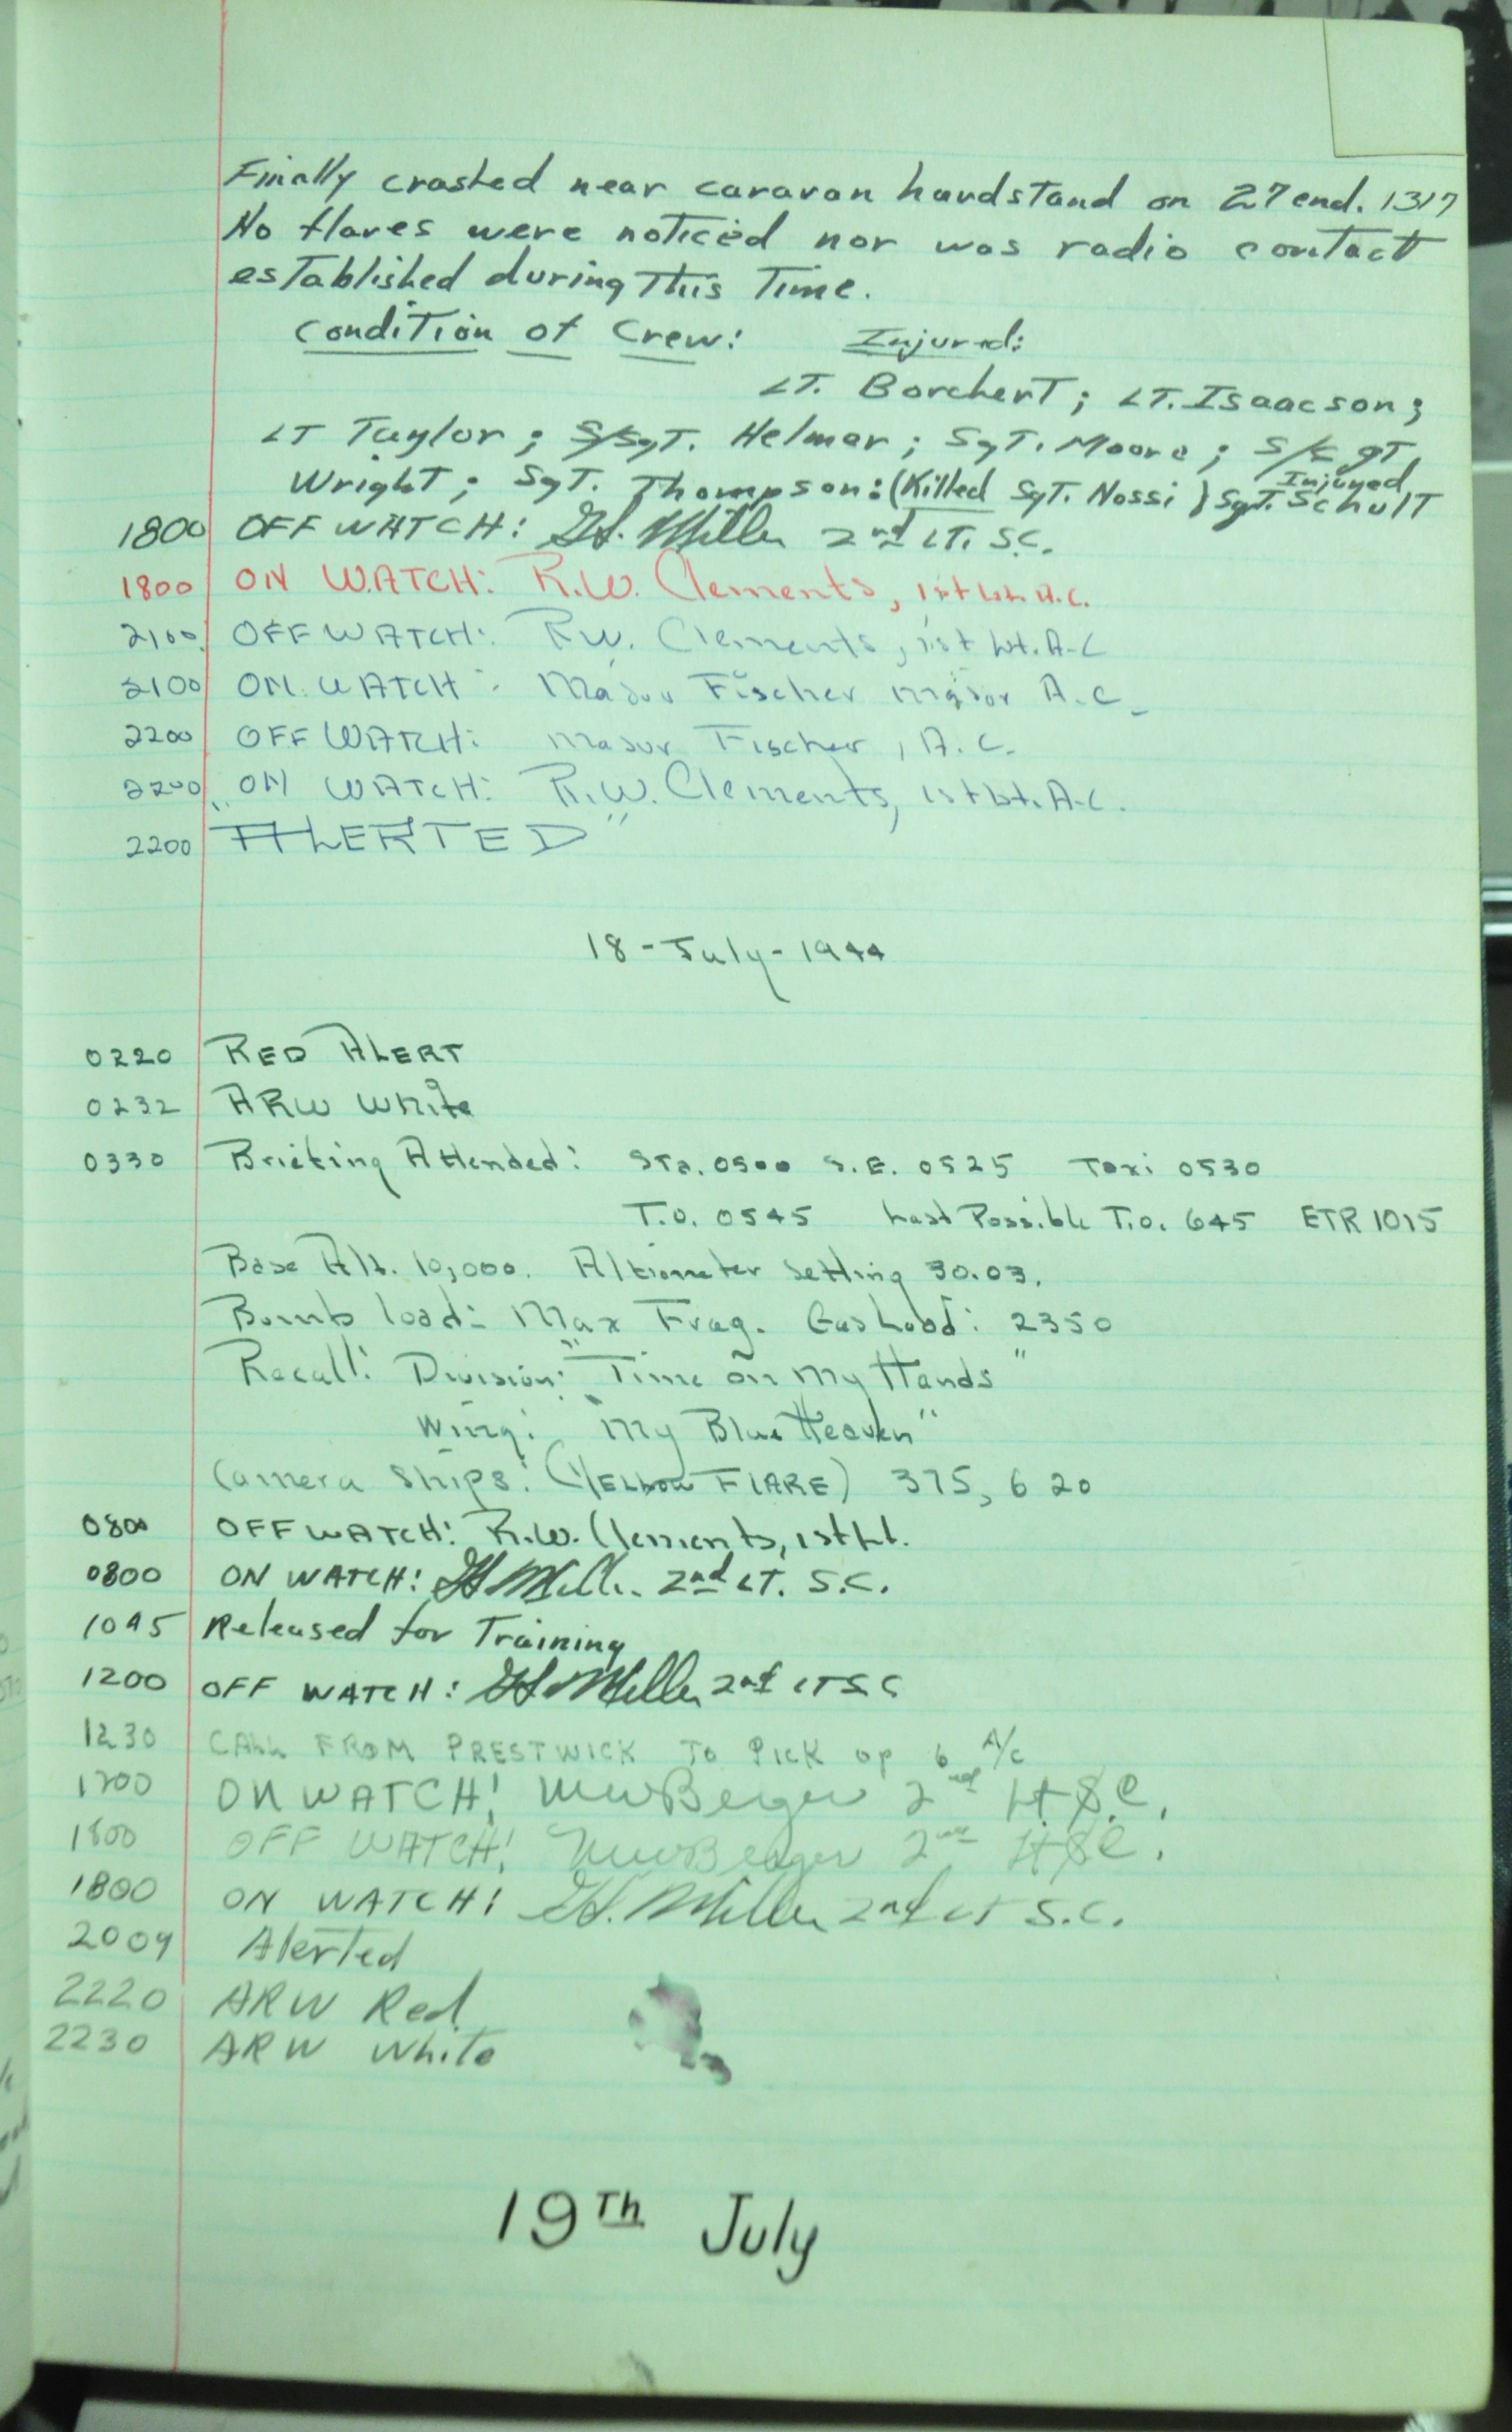 Finally crashed near caravan hardstand on 27 end. 1317
No flares were noticed nor was radio contact
established during This Time.
Condition of Crew: Injured:
LT. Borchert; LT. Isaacson;
LT Taylor; S/SgT. Helmer; SgT. Moore; S/SgT
Wright; SgT. Thompson: (Killed SgT. Nossi) Injured SgT. Schult
1800 OFF WATCH: H. Miller 2nd LT. S.C.
1800 ON WATCH: R.W. Clements, 1st Lt. A.C.
2100 OFF WATCH: R.W. Clements, 1st Lt. A.C
2100 ON WATCH: Major Fischer Major A.C.
2200 OFF WATCH: Major Fischer, A.C.
2200 ON WATCH: R.W. Clements, 1st Lt. A.C.
2200 "ALERTED"
18-July-1944
0220 RED ALERT
0232 ARW White
0330 Briefing Attended: STa. 0500 S.E. 0525 Taxi 0530
T.O. 0545 Last Possible T.O. 645 ETR 1015
Base Alt. 10,000. Altiometer Setting 30.03.
Bomb load: Max Frag. Gas Load: 2350
Recall: Division: "Time on My Hands"
Wing: "My Blue Heaven"
Camera Ships: (YELLOW FLARE) 375, 620
0800 OFF WATCH: R.W. Clements, 1st Lt.
0800 ON WATCH: H Miller 2nd LT. S.C.
1045 Released for Training
1200 OFF WATCH: H Miller 2nd LT S C
1230 CALL FROM PRESTWICK TO PICK UP 6 A/C
1200 ON WATCH! MWBerger 2nd Lt S.C.
1800 OFF WATCH! MWBerger 2nd Lt SC.
1800 ON WATCH! H. Miller 2nd LT S.C.
2009 Alerted
2220 ARW Red
2230 ARW White
19Th July